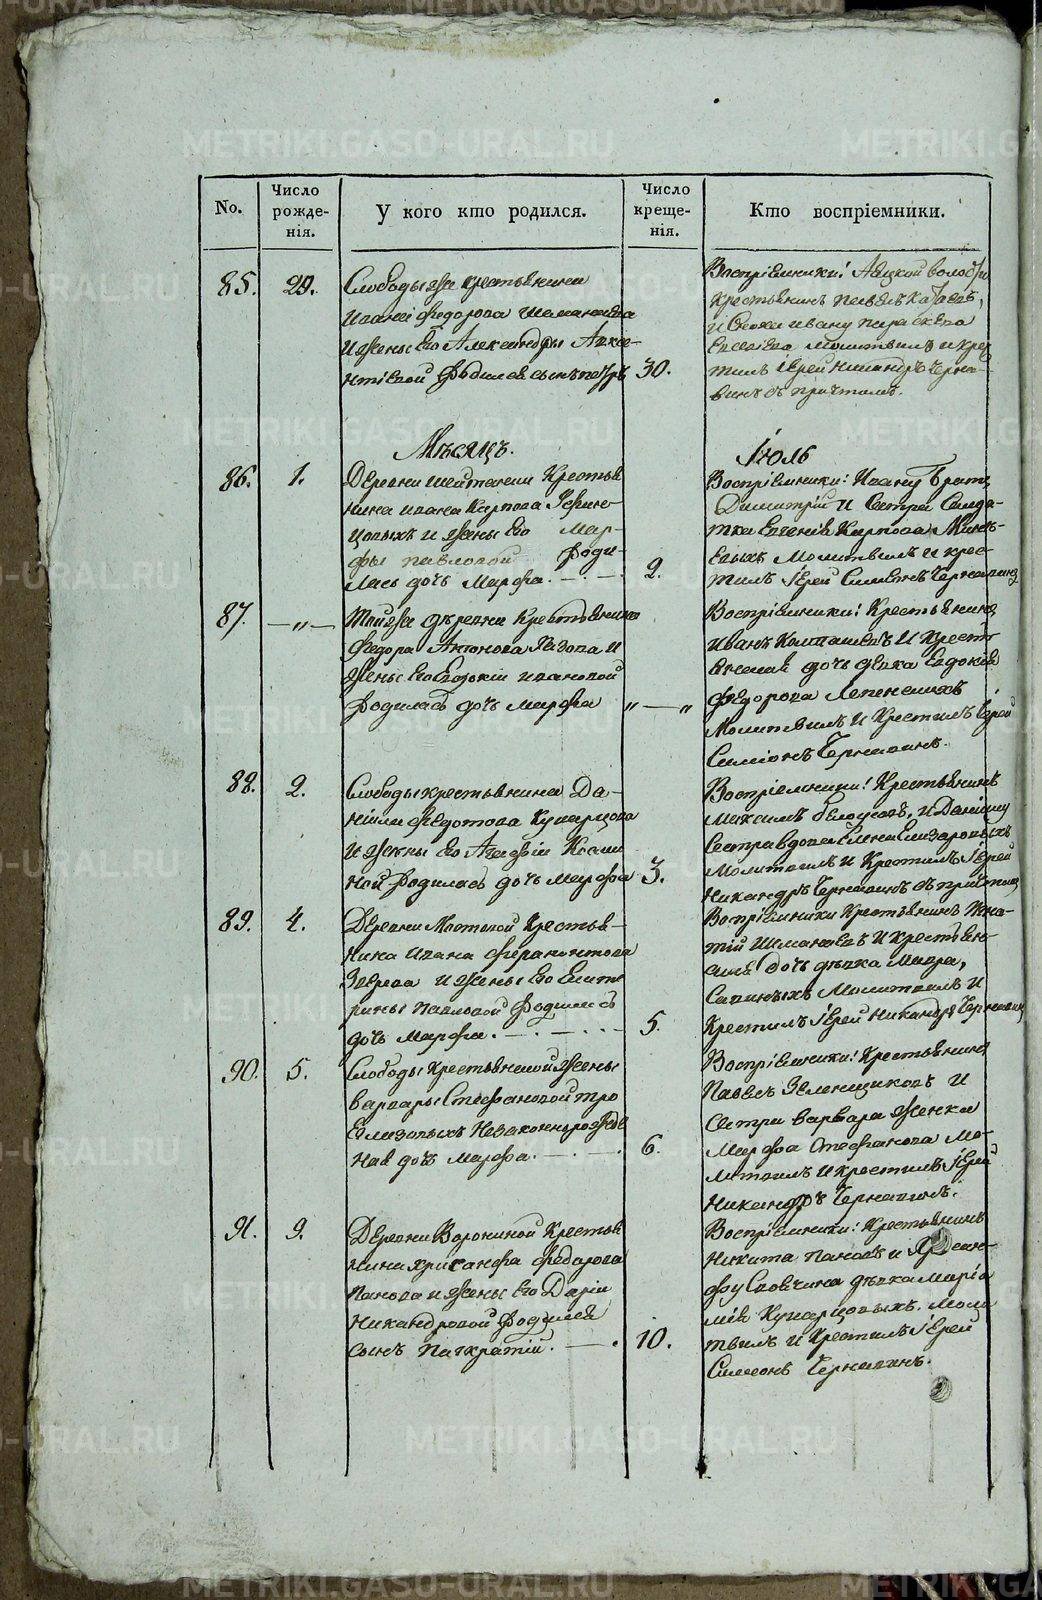 No.
Число рожде-нія.
У кого кто родился.
Число креще-нія.
Кто воспріемники.
85.
29.
Слободы же крестьянина
Ивана Федорова Шеманаева
и жены его Александры
нтіевой родился сынъ Петръ
30.
Воспріемники:
крестьянинъ Павелъ
и Ивану
Молитвилъ и крес
тилъ Іерей Никандръ Черна-
винъ съ причтомъ.
Мѣсяцъ.
Іюль
86.
1.
Деревни Шайтанки Крестья
нина Ивана Карпова
и жены его Мар-
фы Павловой роди-
лась дочь Марфа.
2.
Воспріемники: Ивану братъ
Димитрій и Сестра Солда-
тка Евгенія Карпова
Молитвилъ и крес-
тилъ Іерей Симеонъ Чернавинъ
87.
— „ —
Тойже деревни Крестьянина
Федора Антонова и
жены его Евдокіи Ивановой
родилась дочь Марфа
„ — „
Воспріемники: Крестьянинъ
Иванъ и Крестъ
янская дочь дѣвка Евдокія
Федорова
Молитвилъ и Крестилъ Іерей
Симіонъ Чернавинъ.
88.
2.
Слободы крестьянина Да-
ніила Федотова Кушарцова
и жены его Агафіи Косми
ной родилась дочь Марфа
3.
Воспріемники: Крестьянинъ
Максимъ Белоусовъ, и Даніилу
Сестра вдова Елена
Молитвилъ и Крестилъ Іерей
Никандръ Чернавинъ съ причтомъ
89.
4.
Деревни Мостовой Крестья-
нина Ивана Ферапонтова
Зверева и жены его Екате
рины Павловой родилась
дочь Марфа.
5.
Вопріемники Крестьянинъ Игна-
тій Шеманаевъ и крестьян-
ская дочь дѣвка Мавра,
Савиныхъ Молитвилъ и
Крестилъ Іерей Никандръ Чернавинъ
90.
5.
Слободы Крестьянской жены
Варвары Стефановой
Незаконнорожде
ная дочь Марфа.
6.
Воспріемники: Крестьянинъ
Павелъ Зеленщиковъ и
Сестра Варвара женка
Марфа Стефанова Мо-
литвилъ и крестилъ Іерей
Никандръ Чернавинъ.
91.
9.
Деревни Ворониной Крестья
нина Хрисанфа Федорова
Панова и жены его Даріи
Никандровой родился
сынъ Панкратій.
10.
Воспріемники: Крестьянинъ
Никита Пановъ и Хрисан-
фу дѣвка Марія
Кушарцовыхъ. Моли
твилъ и Крестилъ Іерей
Симеонъ Чернавинъ.
METRIKI.GASO-URAL.RU